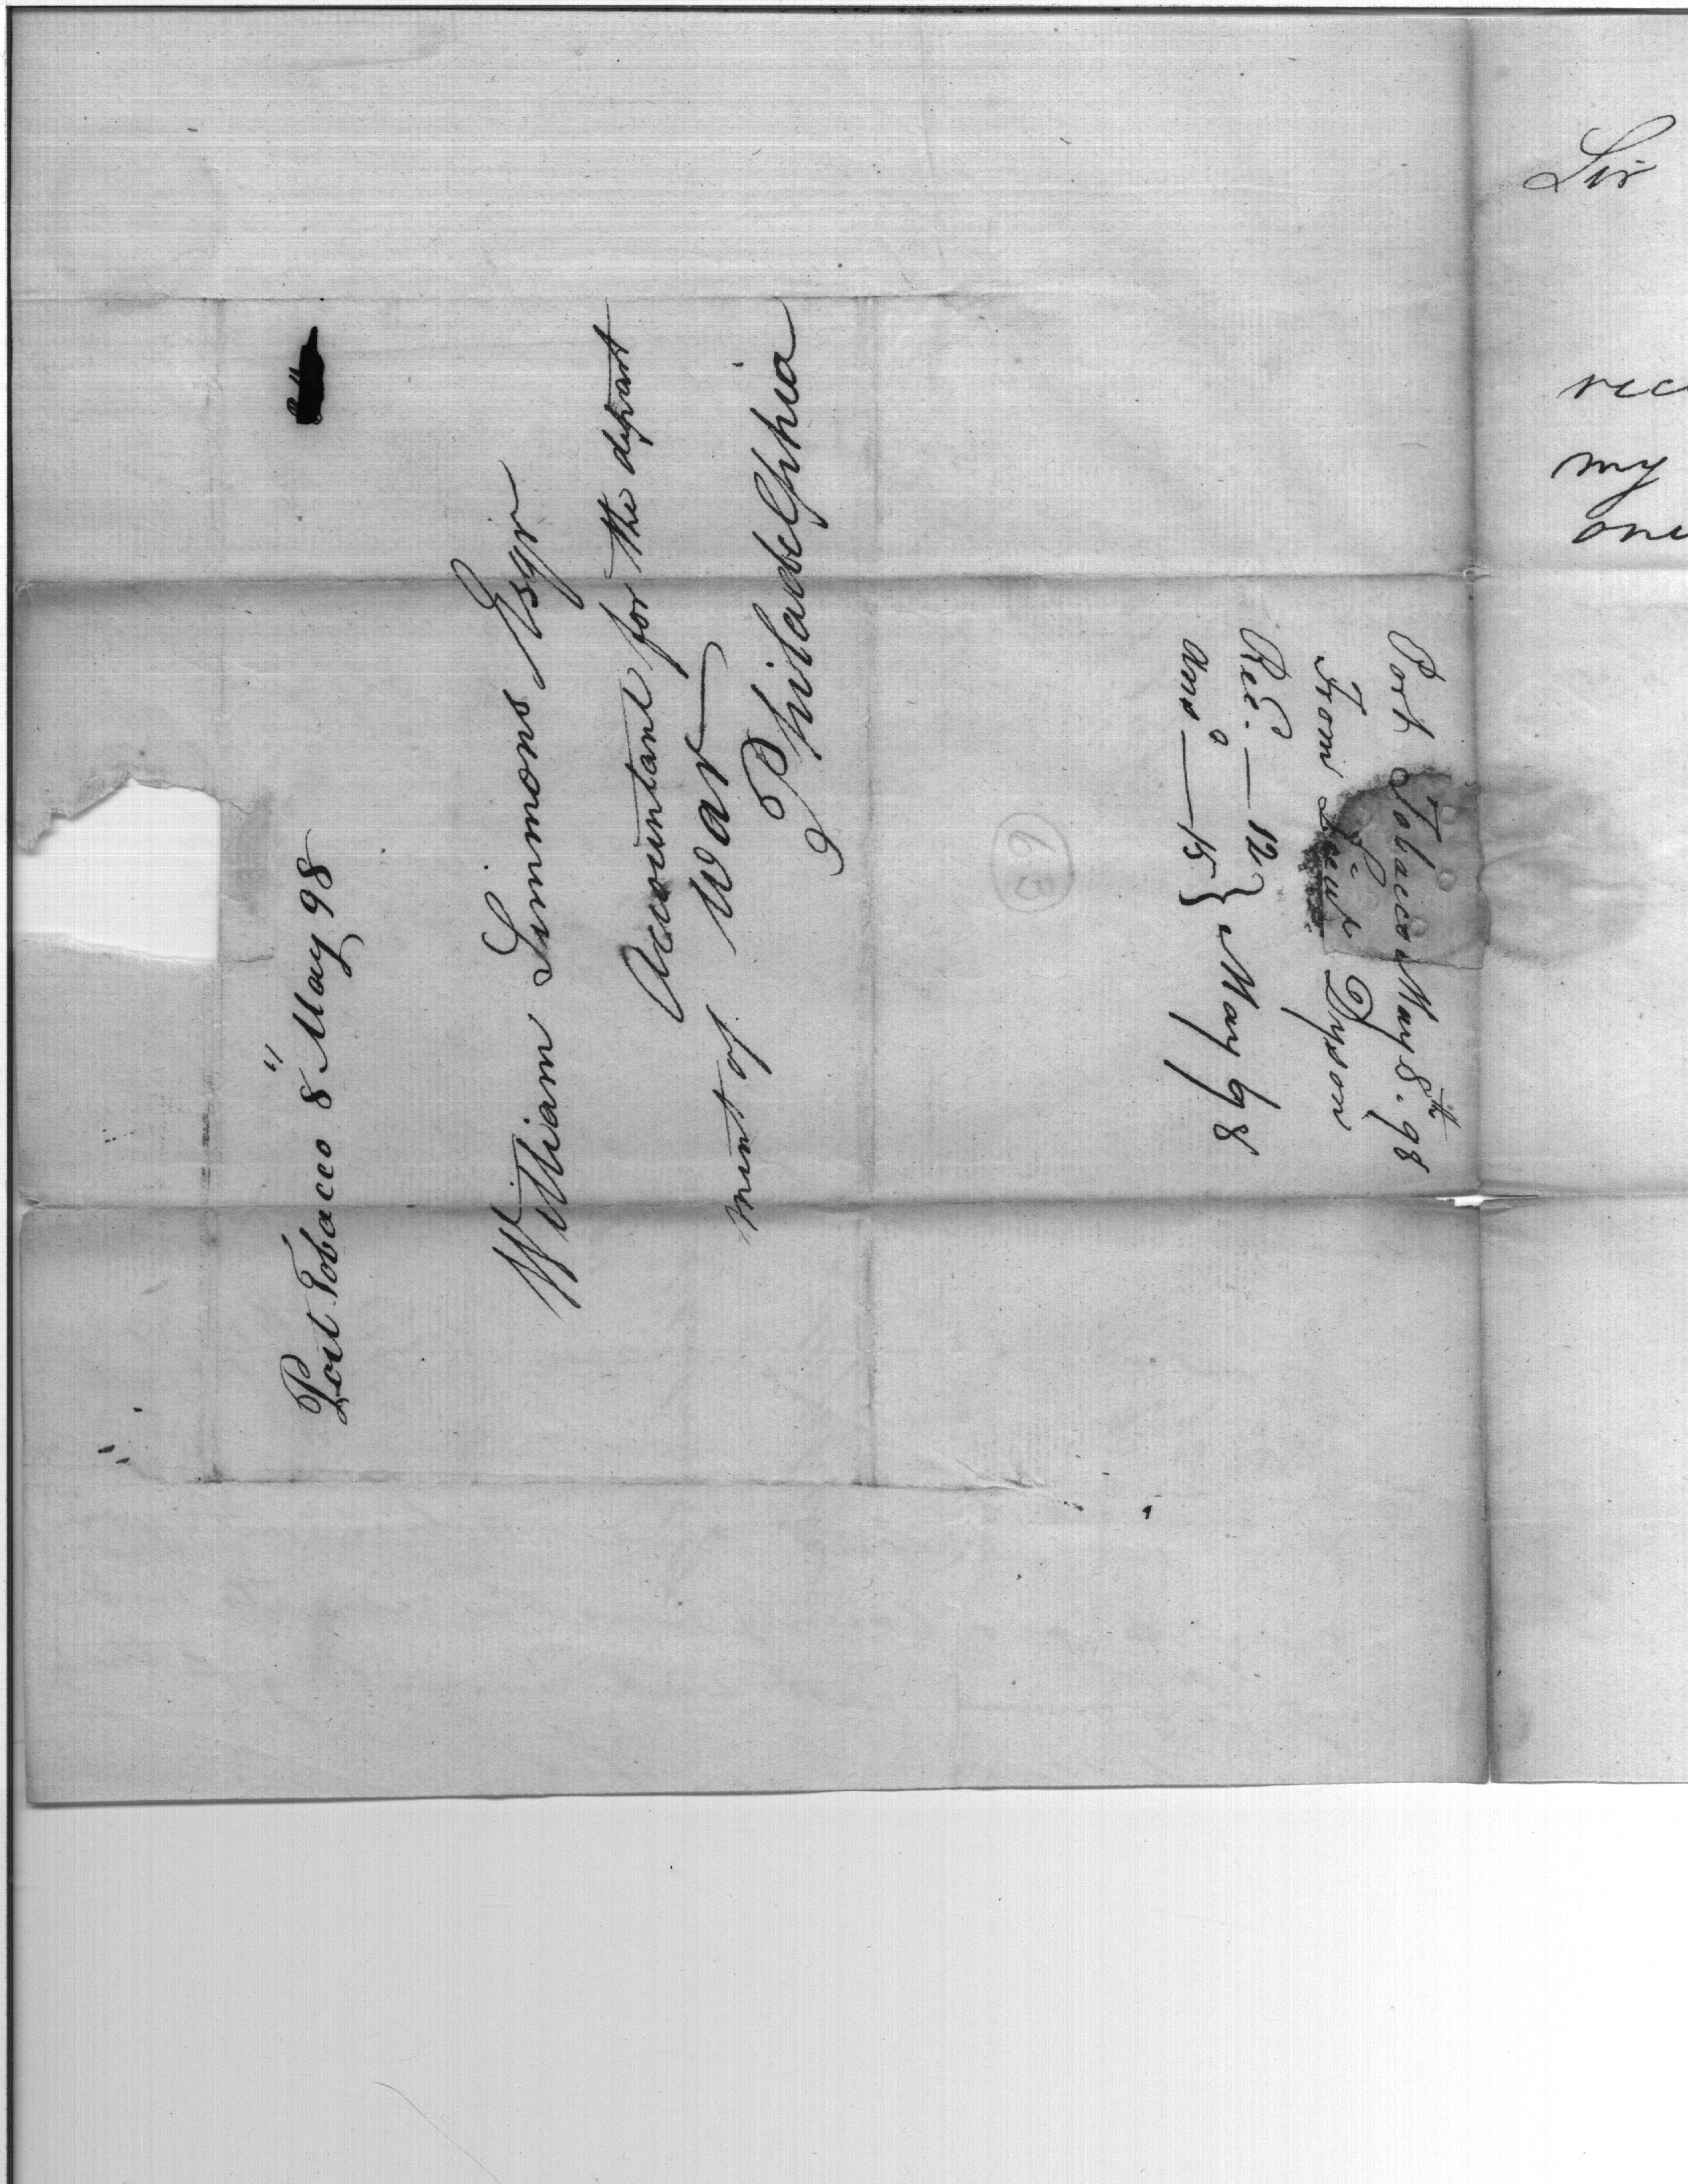 Port Tobacco 8" May 98
William Simmons Esqr
Accountant for the depart
ment of War
Philadelphia
Port Tobacco May 8th. 98
From Lieut Dyson
Recd. — 12 } May 98
Ansd — 15 }
63
Sir
my